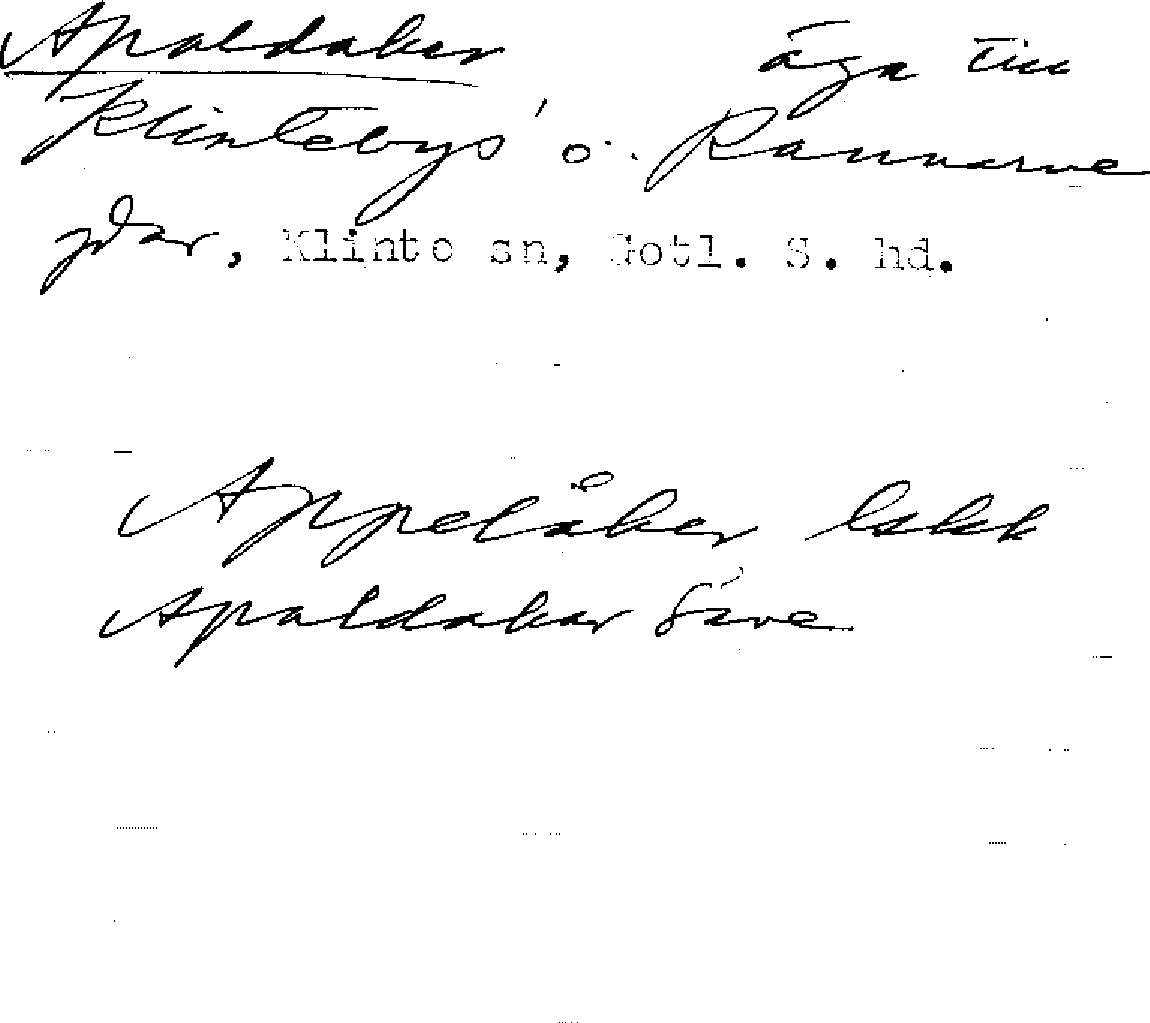 Apaldaker äga till
Klintebys o. Rannarve
gdar, Klinte sn, Gotl. S. hd.
Appelåker lskk
Apaldakar Säve